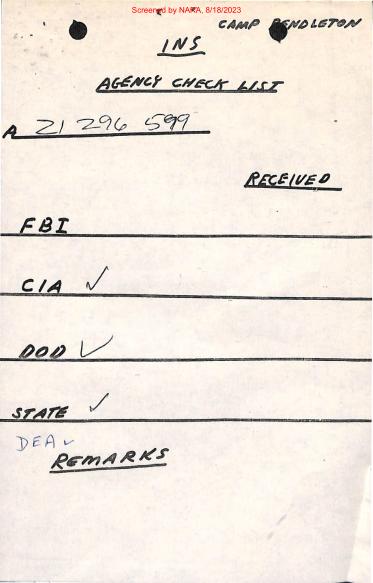 Screened by NARA, 8/18/2023
CAMP PENDLETON
INS
AGENCY CHECK LIST
A 21 296 599
RECEIVED
FBI
CIA ✓
DOD ✓
STATE ✓
DEA ✓
REMARKS